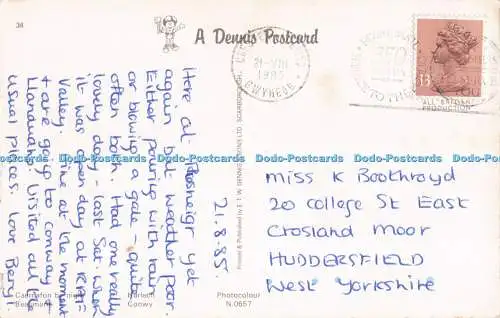 38
A Dennis Postcard
21-VIII
1985
GWYNEDD
13
Here at Rhosneigr yet
again but weather poor.
Either pouring with rain
or blowing a gale - quite
often both. Had one really
lovely day - last Sat. when
it was open day at RAF
Valley. Fine at the moment
+ are going to Conway +
Llandudno. Visited all the
usual places. Love Beryl
21.8.85.
Printed & Published by E. T. W. DENNIS & SONS LTD. SCARBOROUGH
Miss K Boothroyd
20 College St East
Crosland Moor
HUDDERSFIELD
West Yorkshire
Caernarfon
Beaumaris
Harlech
Conwy
Photocolour
N.0657
Dodo-Postcards Dodo-Postcards Dodo-Postcards Dodo-Postcards Dodo-Postcards